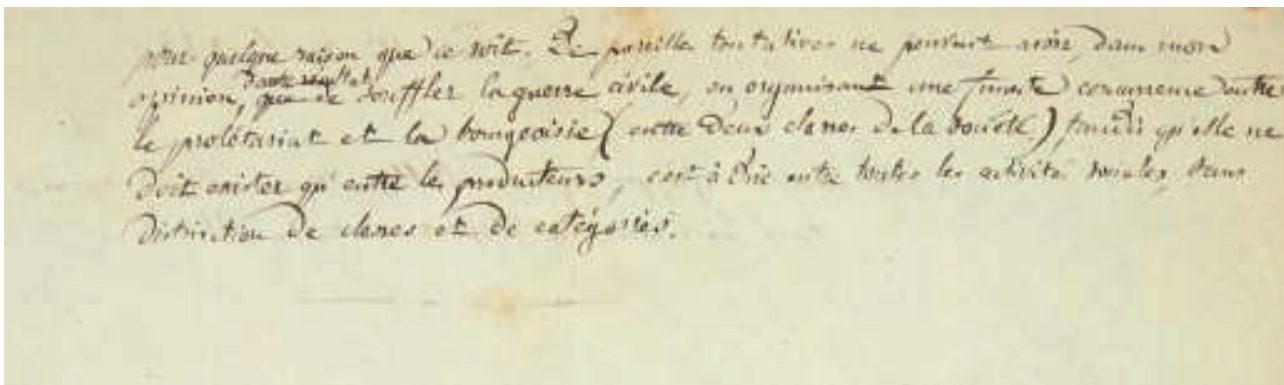 pour quelque raison que ce soit. De pareille tentatives ne peuvent avoir, dans mon
opinion, d'autre resultat que de souffler la guerre civile, en organisant une funeste concurrence entre
le prolétariat et la bourgeoisie (entre deux classes de la société) tandis qu'elle ne
doit exister qu'entre les producteurs, c'est à dire entre toutes les activités sociales, sans
distinction de classes et de catégories.